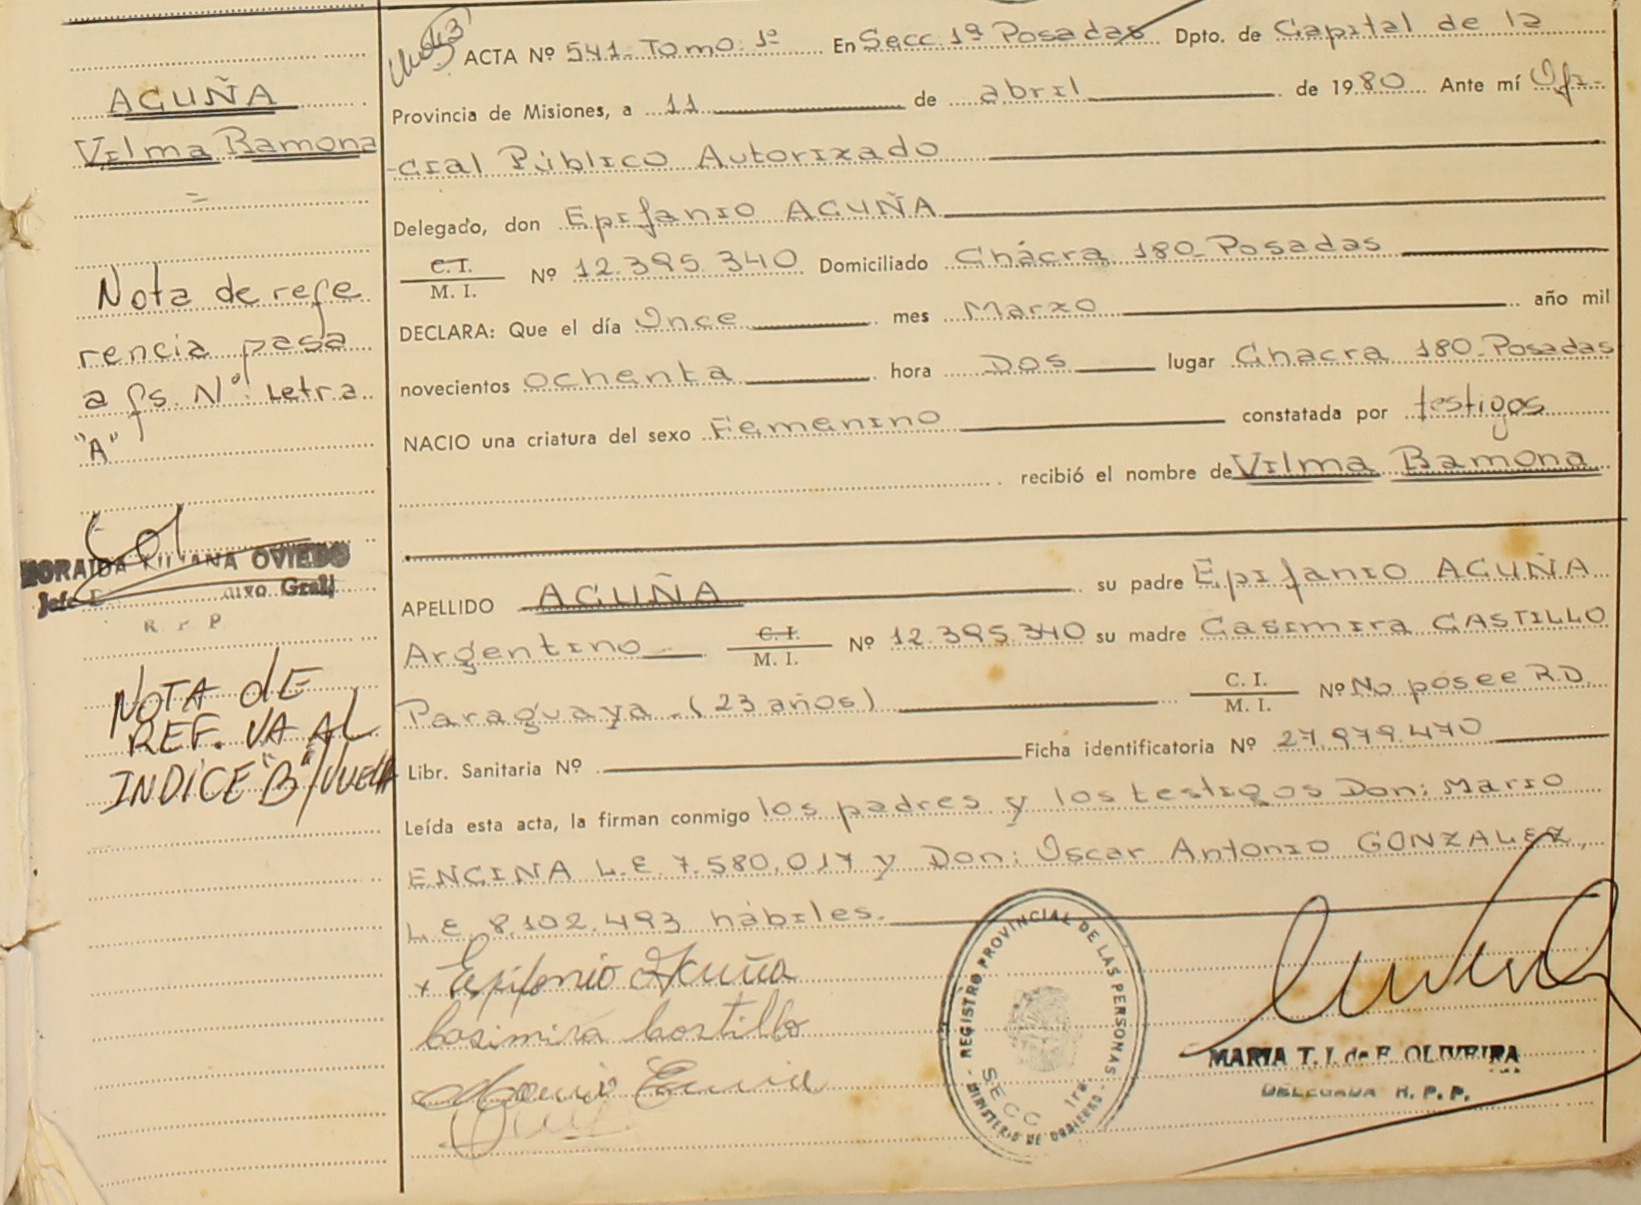 ACUÑA
Vilma Ramona
=
Nota de refe
rencia pasa
a fs. Nº: Letra
"A"
LILIANA OVIEDO
Jefe Gral
R. P. P
NOTA dE
REF. VA AL
INDICE "B"/VUELTA
ACTA Nº 541- Tomo: 1º En Secc. 1ª Posadas Dpto. de Capital de la
Provincia de Misiones, a 11 de abril de 1980 Ante mí Ofi-
-cial Público Autorizado
Delegado, don Epifanio ACUÑA
C.I. / M. I. Nº 12.395.340 Domiciliado Chácra 180- Posadas
DECLARA: Que el día Once mes Marzo año mil
novecientos ochenta hora Dos lugar Chacra 180- Posadas
NACIO una criatura del sexo Femenino constatada por testigos
recibió el nombre de Vilma Ramona
APELLIDO ACUÑA su padre Epifanio ACUÑA
Argentino C.I. / M. I. Nº 12.395.340 su madre Casimira CASTILLO
Paraguaya.-(23 años) C. I. / M. I. Nº No posee R.D.
Libr. Sanitaria Nº Ficha identificatoria Nº 27.979.470
Leída esta acta, la firman conmigo los padres y los testigos Don: Mario
ENCINA L.E. 7.580.017 y Don: Oscar Antonio GONZALEZ,
L.E. 8.102.493 hábiles.
x Epifanio Acuña
Casimira Castillo
Mario Encina
REGISTRO PROVINCIAL DE LAS PERSONAS
SECC 1ra
MINISTERIO DE GOBIERNO
MARIA T. I. de F. OLIVEIRA
DELEGADA R. P. P.